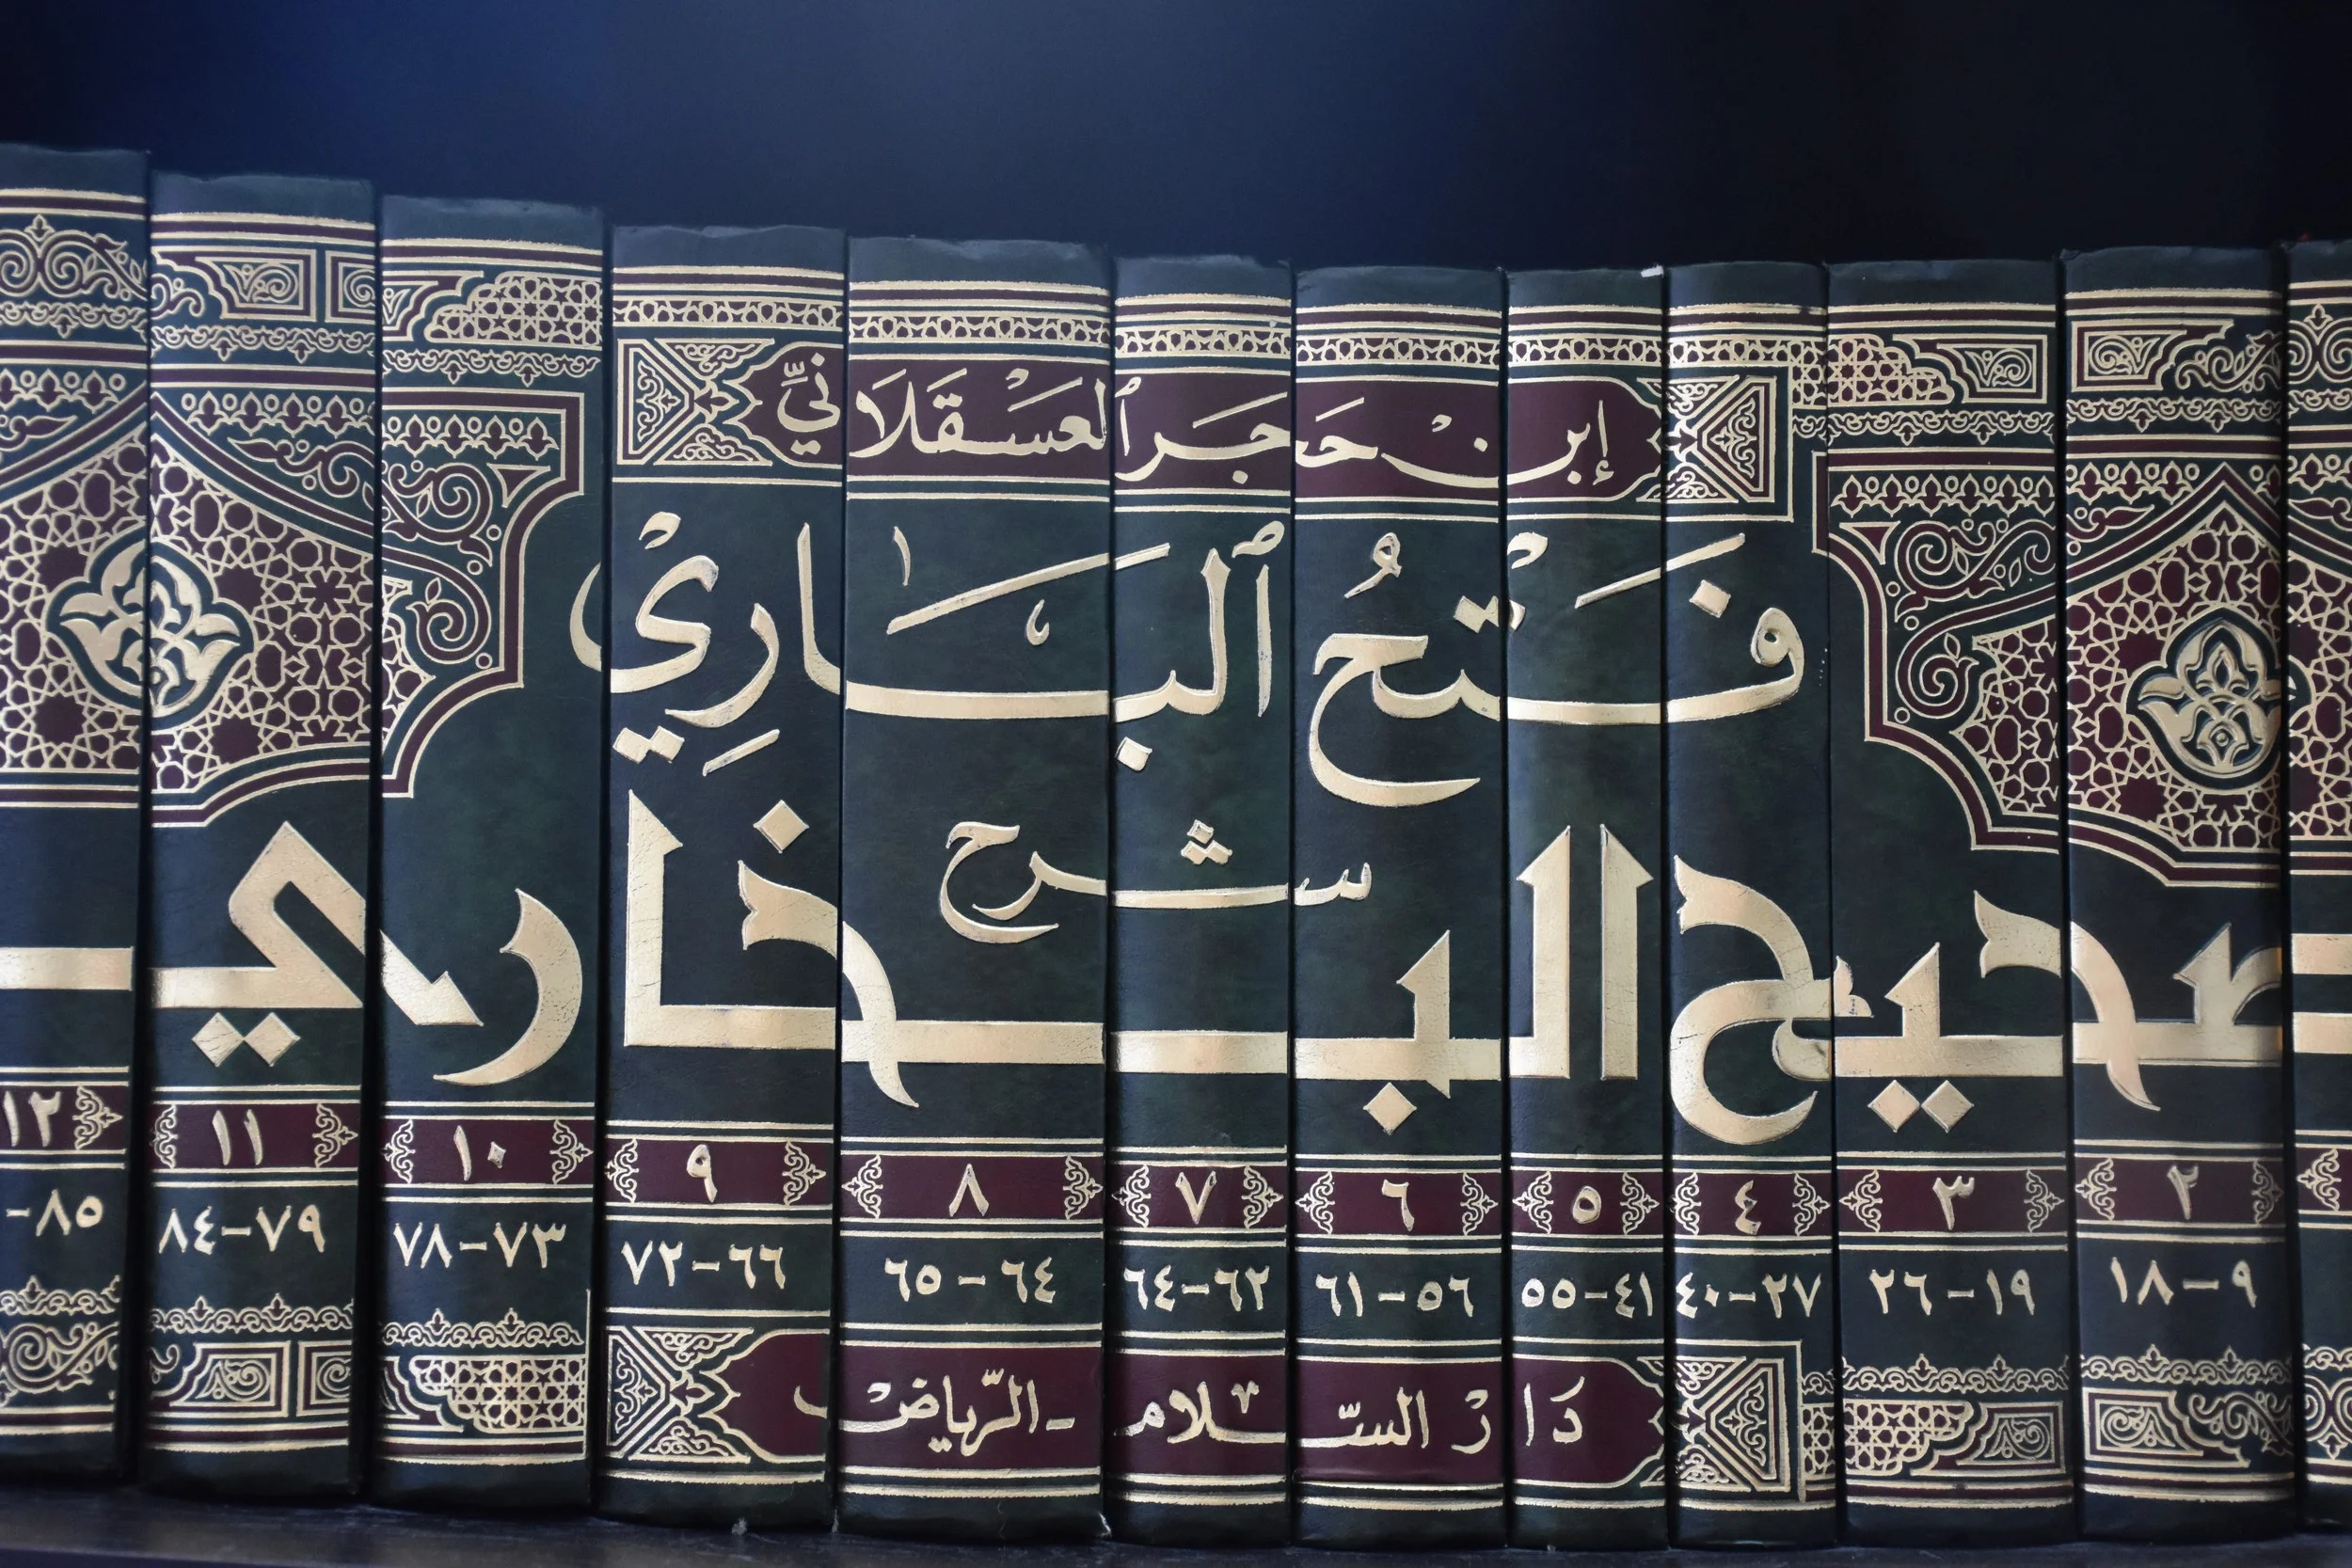 إبن حَجَر ٱلعسْقَلَانيّ
فَتْحُ ٱلبَاريْ
شرح
صحيح البخاري
٢ ٣ ٤ ٥ ٦ ٧ ٨ ٩ ١٠ ١١ ١٢
٩-١٨ ١٩-٢٦ ٢٧-٤٠ ٤١-٥٥ ٥٦-٦١ ٦٢-٦٤ ٦٤-٦٥ ٦٦-٧٢ ٧٣-٧٨ ٧٩-٨٤ ٨٥-
دَارْ السّلام - الرّياض